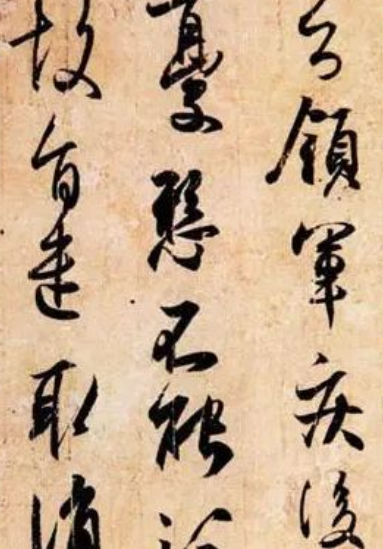 領軍疾後
憂懸不能
故旨遣取消